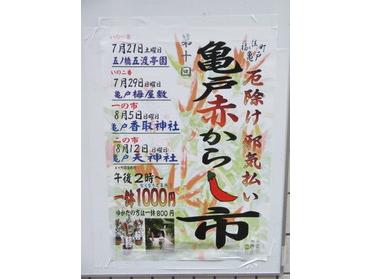 厄除け 邪気払い
第十回
亀戸赤からし市
いの一番
7月21日土曜日
五ノ橋五渡亭園
いの二番
7月29日日曜日
亀戸梅屋敷
一の市
8月5日日曜日
亀戸香取神社
二の市
8月12日日曜日
亀戸天神社
午後2時～
一鉢1000円
ゆかたの方は一鉢800円